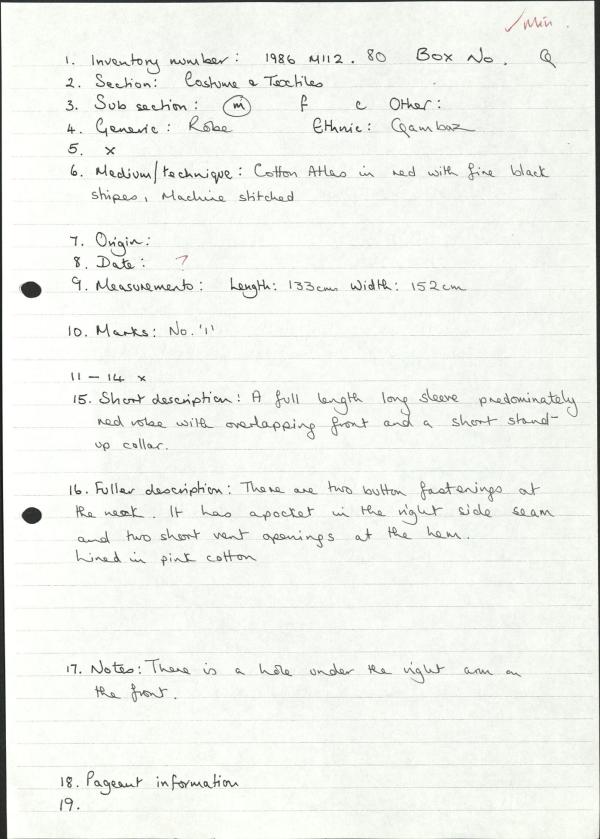 1. Inventory number: 1986 M112.80 Box No. Q
2. Section: Costume & Textiles
3. Sub section: m f c Other:
4. Generic: Robe Ethnic: Qambaz
5. x
6. Medium/technique: Cotton Atlas in red with fine black
stripes, Machine stitched
7. Origin:
8. Date: ?
9. Measurements: Length: 133cm Width: 152cm
10. Marks: No. '11'
11 – 14 x
15. Short description: A full length long sleeve predominately
red robe with overlapping front and a short stand-
up collar.
16. Fuller description: There are two button fastenings at
the neck. It has a pocket in the right side seam
and two short vent openings at the hem.
Lined in pink cotton
17. Notes: There is a hole under the right arm on
the front.
18. Pageant information
19.